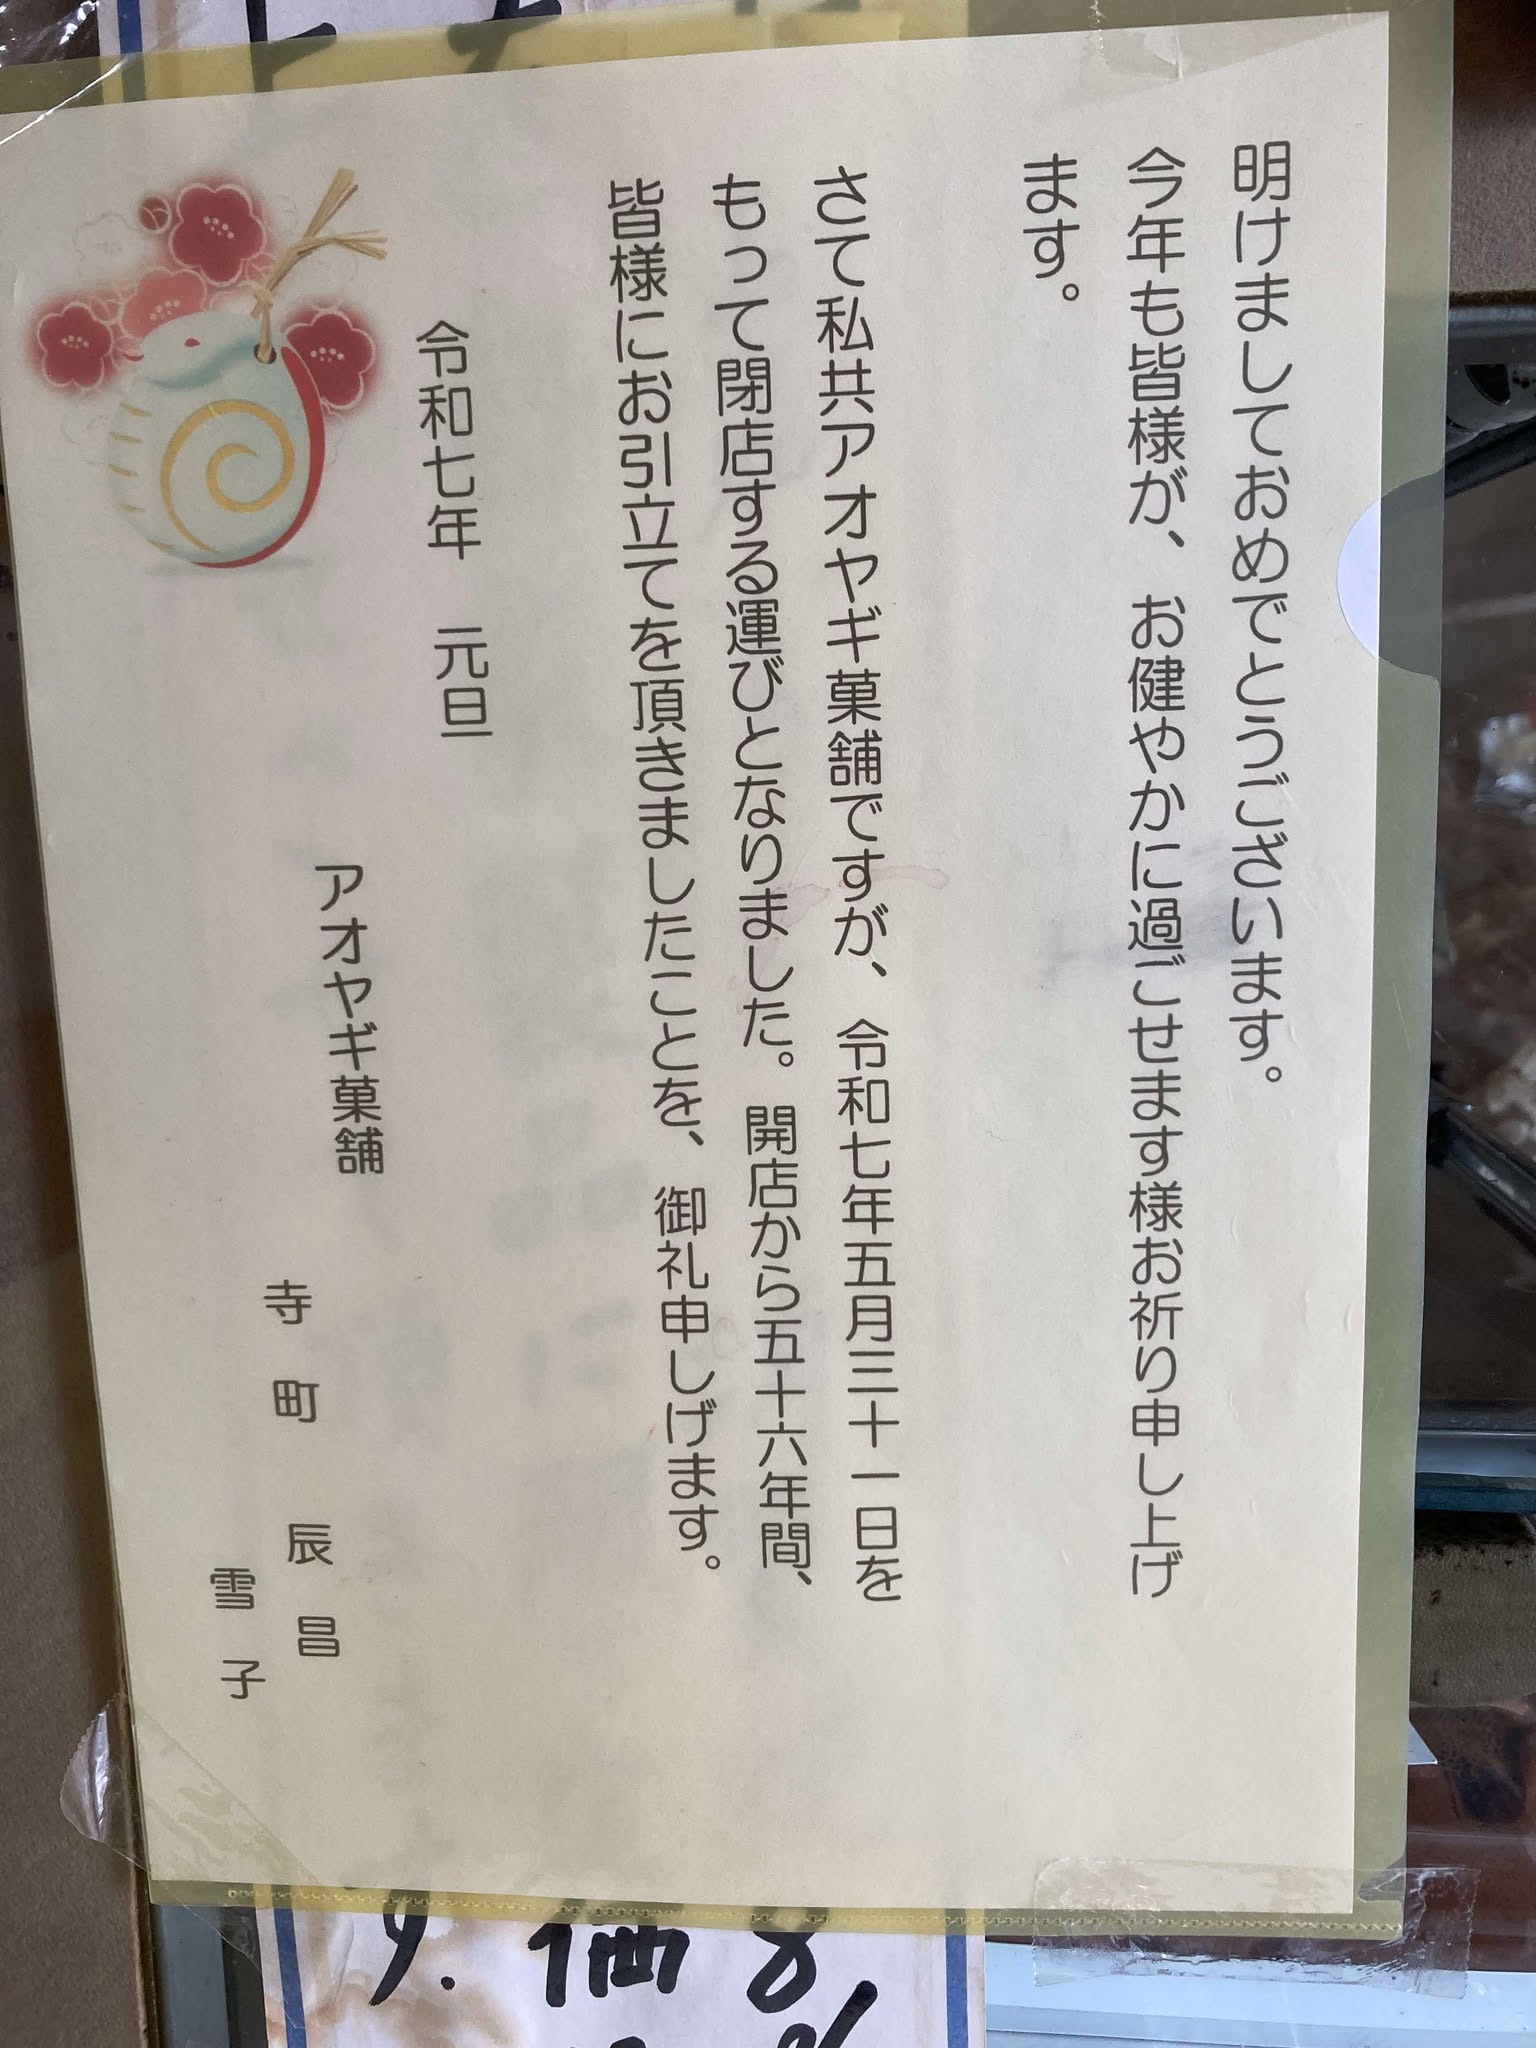 明けましておめでとうございます。
今年も皆様が、お健やかに過ごせます様お祈り申し上げ
ます。
さて私共アオヤギ菓舗ですが、令和七年五月三十一日を
もって閉店する運びとなりました。開店から五十六年間、
皆様にお引立てを頂きましたことを、御礼申しげます。
令和七年　元旦
アオヤギ菓舗
寺町　辰昌
雪子